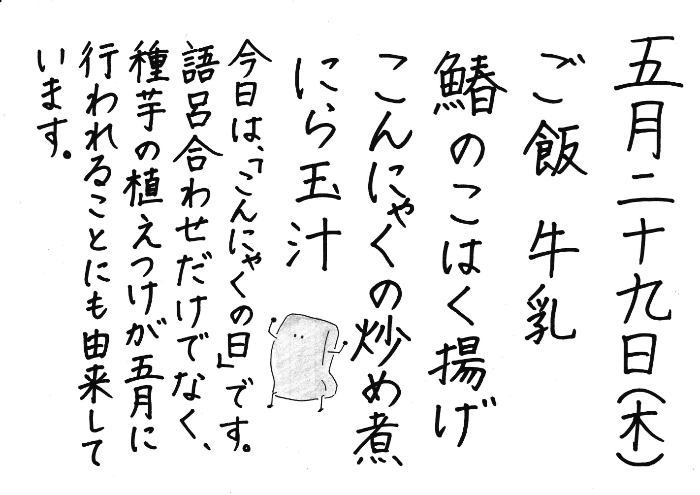 五月二十九日(木)
ご飯 牛乳
鰆のこはく揚げ
こんにゃくの炒め煮
にら玉汁
今日は、「こんにゃくの日」です。
語呂合わせだけでなく、
種芋の植えつけが五月に
行われることにも由来して
います。